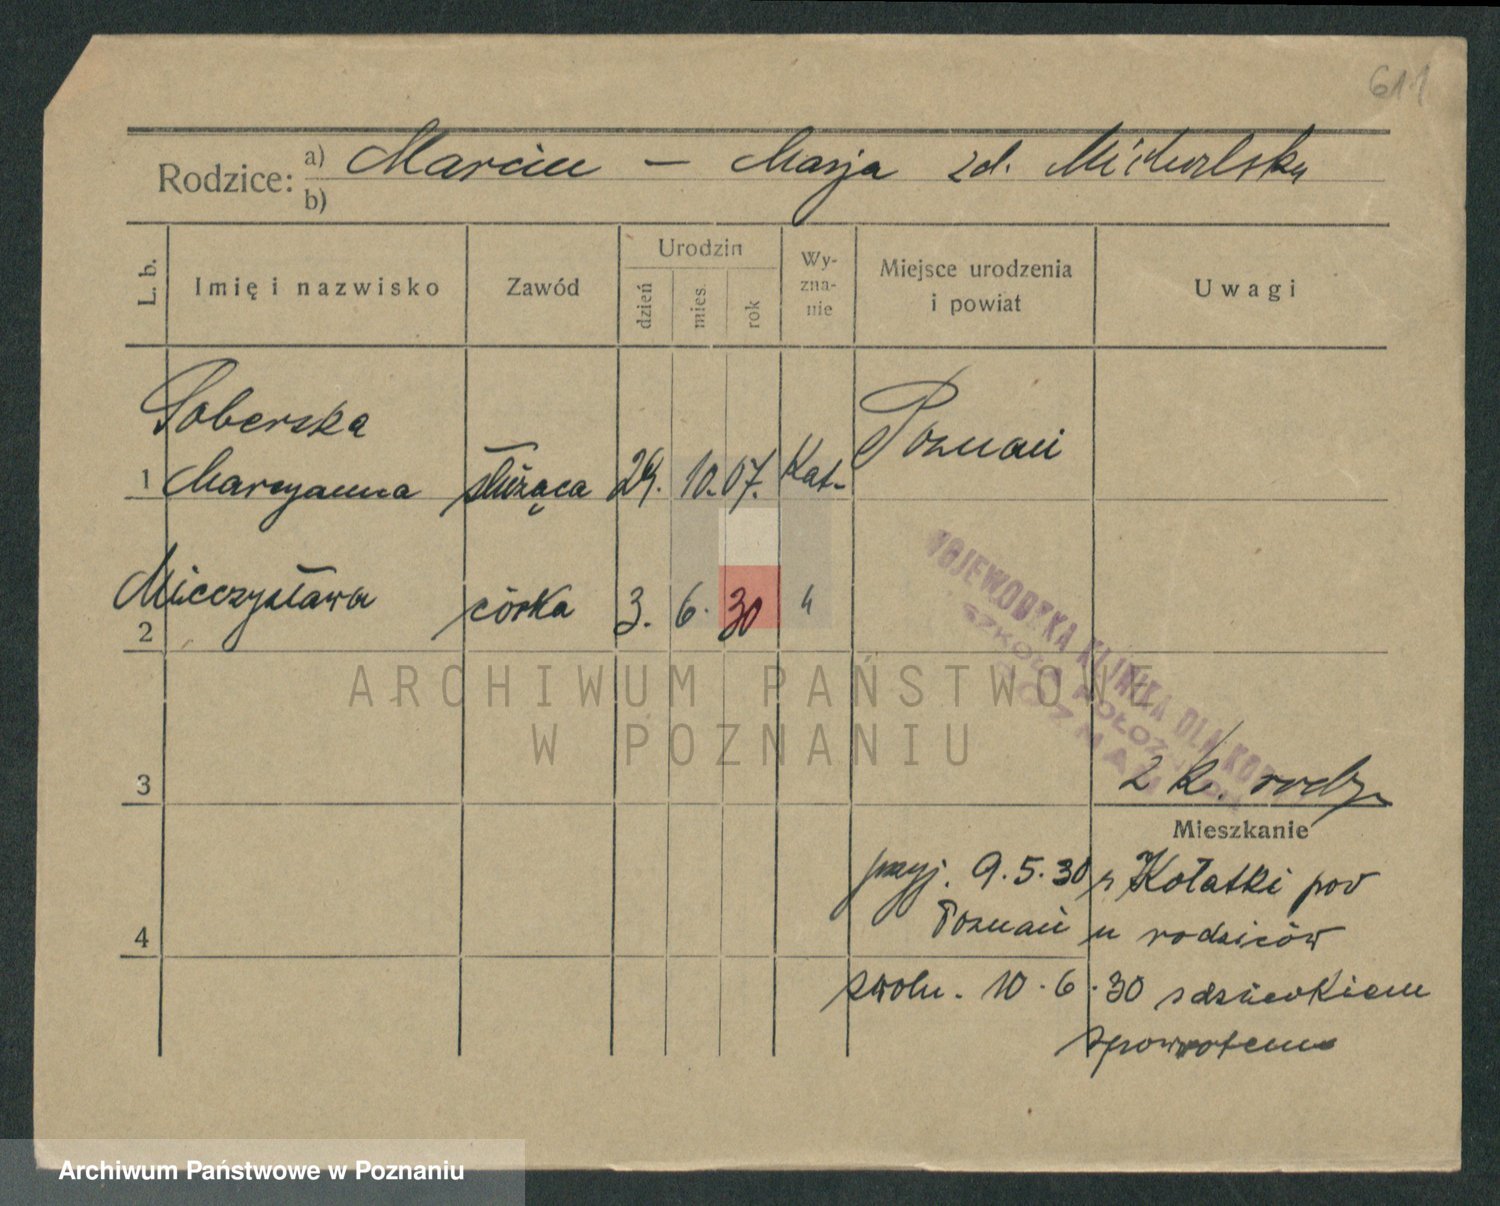 611
Rodzice: a) Marcin — Marja zd. Michalska
b)
L. b.
Imię i nazwisko
Zawód
Urodzin
dzień
mies.
rok
Wy-
zna-
nie
Miejsce urodzenia
i powiat
Uwagi
Soberska
1 Marcyanna służąca 29. 10. 07. Kat- Poznań
2 Mieczysława córka 3. 6. 30 "
WOJEWÓDZKA KLINIKA DLA KOBIET
SZKOŁA POŁOŻNYCH
POZNAŃ
ARCHIWUM PAŃSTWOWE
W POZNANIU
3
2 k. rodz.
Mieszkanie
przyj. 9.5.30 z Kołatki pow
4
Poznań u rodziców
zwoln. 10.6.30 z dzieckiem
zpowrotem
Archiwum Państwowe w Poznaniu